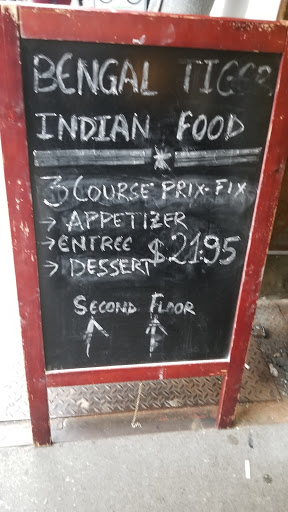 BENGAL TIGER
INDIAN FOOD
3 COURSE PRIX-FIX
→ APPETIZER
→ ENTREE
→ DESSERT $21.95
SECOND FLOOR